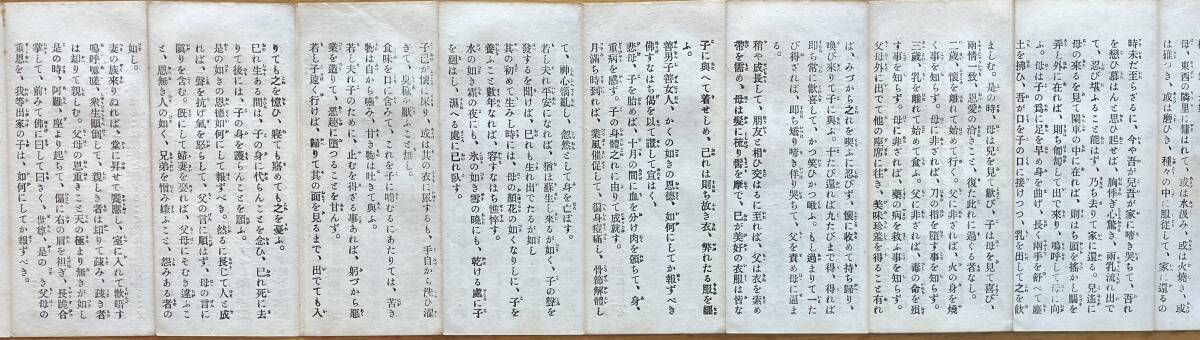 母、東西の隣里に傭はれて、或は水汲み、或は火燒き、或
は碓つき、或は磨ひき、種々の中に服從して、家に還るの
時未だ至らざるに、今や吾が兒吾が家に啼き哭びて、吾れ
を戀ひ慕はんと思ひ起せば、胸悸ぎ心驚き、兩乳流れ出で
て、忍び堪ふること能ず、乃ち去りて家に還る。兒遙に
母の來るを見て、闌車の中に在れば、則はち頭を搖かし腦を
弄し、外に在れば、則はち匍匐して出で來り、嗚呼して母に向
ふ。母は子の爲に足を早め身を曲げ、長く兩手を舒べて塵
土を拂ひ、吾が口を子の口に接けつゝ、乳を出して之を飲
ましむ。是の時、母は兒を見て歡び、子は母を見て喜び、
兩情一致、恩愛の洽きこと、復た此れに過ぐる者なし。
二歳、懷を離れて始めて行く。父に非ざれば、火の身を燒
く事を知らず。母に非ざれば、刀の指を墮す事を知らず。
三歳、乳を離れて始めて食ふ。父に非ざれば、毒の命を殞
す事を知らず。母に非ざれば、藥の病を救ふ事を知らず。
父母外に出でて他の座席に往き、美味珍羞を得ること有れ
ば、みづから之れを喫ふに忍びず、懷に收めて持ち歸り、
喚び來りて子に與ふ。十たび還れば九たびまで得、得れば
即ち常に歡喜して、かつ笑ひかつ噉ふ。もし過りて一たび
得ざれば、即はち矯り啼き佯り哭びて、父を責め母に逼ま
る。
稍や成長して、朋友と相ひ交はるに至れば、父は衣を索め
帶を需め、母は髮に梳り髻を摩で、己が美好の衣服は皆な
子に與へて着せしめ、己れは則ち故き衣、弊れたる服を纏
ふ。
善男子善女人、かくの如きの恩德、如何にしてか報ずべき
佛すなはち偈を以て讃して宣はく、
悲母、子を胎めば、十月の間に血を分け肉を頒ちて、身、
重病を感ず、子の身體之れに由りて成就す。
月滿ち時到れば、業風催促して、徧身疼痛し、骨節解體し
て、神心惱亂し、忽然として身を亡ぼす。
若し夫れ平安になれば、猶ほ蘇生し來るが如く、子の聲を
發するを聞けば、己れも生れ出でたるが如し
其の初めて生みし時には、母の顏花の如くなりしに、子を
養ふこと數年なれば、容すなはち憔悴す。
水の如き霜の夜にも、氷の如き雪の曉にも、乾ける處に子
を廻はし、濕へる處に己れ臥す。
子己が懷に尿り、或は其の衣に尿するも、手自から洗ひ濯
ぎて、臭穢を厭ふこと無し。
食味を口に含みて、これを子に哺むるにあたりては、苦き
物は自から嚥み、甘き物は吐きて與ふ。
若し夫れ子のために、止むを得ざる事あれば、躬づから惡
業を造りて、惡趣に墮つることを甘んず。
若し子遠く行けば、歸りて其の面を見るまで、出でても入
りても之を憶ひ、寢ても寤めても之を憂ふ。
己れ生ある間は、子の身に代らんことを念ひ、己れ死に去
りて後には、子の身を護らんことを願ふ。
是の如きの恩德如何にして報ずべき。然るに長じて人と成
れば、聲を抗げ氣を怒らして、父の言に順はず、母の言に
瞋りを含む。既にして婦妻を娶れば、父母にそむき違ふこ
と、恩無き人の如く、兄弟を憎み嫌ふこと、怨みある者の
如し。
妻の族來りぬれば、堂に昇せて饗應し、室に入れて歡晤す
嗚呼噓嗟、衆生顚倒して、親しき者は却りて疎み、疎き者
は却りて親しむ。父母の恩重きこと天の極まり無きが如し
是の時、阿難、座より起ちて、偏に右の肩を袒ぎ、長跪合
掌して、前みて佛に曰して曰さく、世尊、是の如き父母の
重恩を、我等出家の子は、如何にしてか報ずべき。